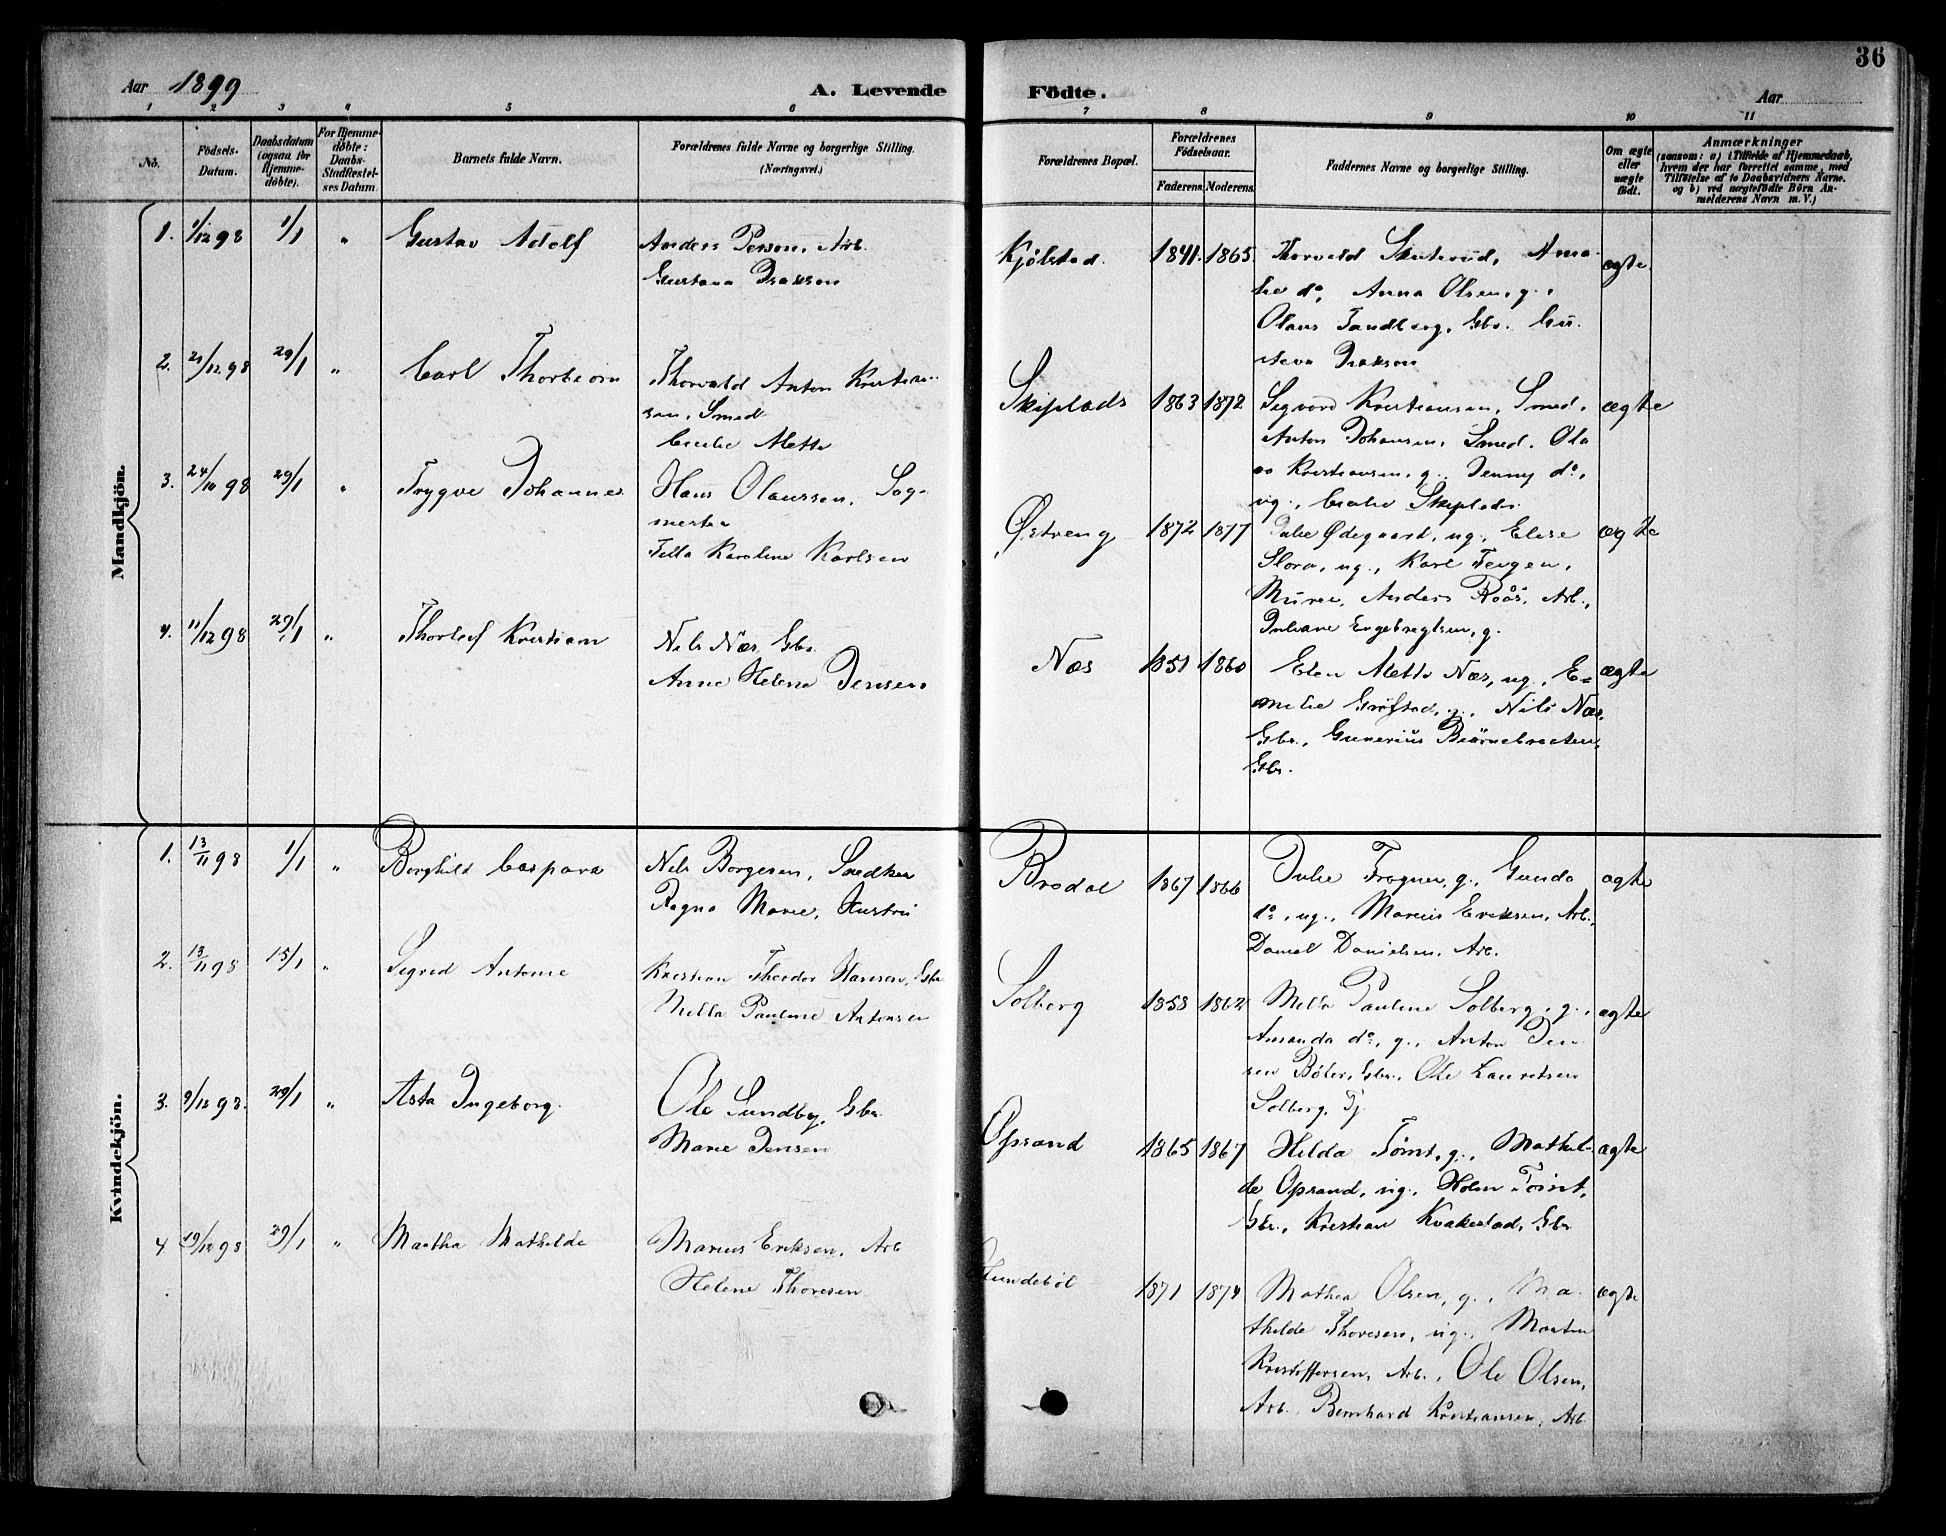 36
Aar 1899
A. Levende Födte.
Aar
1 2 3 4 5 6 7 8 9 10 11
No.
Födsels-
Datum.
Daabsdatum
(ogsaa for
Hjemme-
döbte).
For Hjemme-
döbte:
Daabs-
Stadfæstel-
ses Datum.
Barnets fulde Navn.
Forældrenes fulde Navne og borgerlige Stilling.
(Næringsvei.)
Forældrenes Bopæl.
Forældrenes
Födselsaar.
Faderens. Moderens.
Faddernes Navne og borgerlige Stilling.
Om ægte
eller
uægte
födt.
Anmærkninger
(saasom: a) i Tilfælde af Hjemmedaab,
hvem der har forrettet samme, med
Tilföielse af to Daabsvidners Navne.
og b) ved uægtefödte Börn An-
melderens Navn m. V.)
Mandkjön.
1. 1/12 98 1/1 " Gustav Adolf
Anders Person, Arb.
Gustava Isakson
Kjölstad. 1841. 1865.
Thorvald Skuterud, Ama-
lie do, Anna Olsen, g.,
Olaus Sandberg, Gbr. Gu-
stava Isakson
ægte.
2. 21/12 98 29/1 " Carl Thorbiörn
Thorvald Anton Kristian-
sen, Smed
Cecilie Mette
Skiplads 1863 1872
Sigvard Kristiansen, Smed,
Anton Johansen, Smed. Ola-
va Kristiansen, g., Jenny do,
ug., Cecilie Skiplads.
ægte
3. 24/10 98 29/1 " Trygve Johannes
Hans Olaussen, Sag-
mester
Tilla Karoline Karlsen
Østreng 1872 1877
Julie Ødegaard, ug., Elise
Flora, ug., Karl Teigen,
Murer, Anders Roås, Arb.,
Juliane Engebregtsen, g.
ægte
4. 11/12 98 29/1 " Thorleif Kristian
Nils Næs, Gbr.
Anne Helene Jensen
Næs 1851 1860
Elen Mette Næs, ug., E-
milie Gröfstad, g., Nils Næs,
Gbr., Gunerius Biörnebraaten,
Gbr.
ægte
Kvindekjön.
1. 13/11 98 1/1 " Borghild Caspara
Nils Borgesen, Snedker
Ragna Marie, Hustru
Brodal 1867 1866
Julie Frogner, g., Gunda
do, ug., Marius Eriksen, Arb.,
Daniel Danielsen, Arb.
ægte
2. 13/11 98 15/1 " Sigrid Antonie
Kristian Theodor Hansen, Gbr.
Milla Pauline Antonsen
Solberg 1858 1862
Milla Pauline Solberg, g.,
Amanda do, g., Anton Jen-
sen Böler, Gbr., Ole Lauritsen
Solberg, Tj.
ægte
3. 9/12 98. 29/1 " Asta Ingeborg.
Ole Sundby, Gbr.
Marie Jensen
Opsand 1865 1867
Hilda Tömt, g., Mathil-
de Opsand, ug., Holm Tömt,
Gbr., Kristian Kvakestad, Gbr
ægte
4 19/12 98 29/1 " Martha Mathilde
Marius Eriksen, Arb
Helene Thoresen
Hundeböl 1871 1874
Mathea Olsen, g., Ma-
thilde Thoresen, ug., Morten
Kristoffersen, Arb., Ole Olsen,
Arb. Bernhard Kristiansen, Arb
ægte